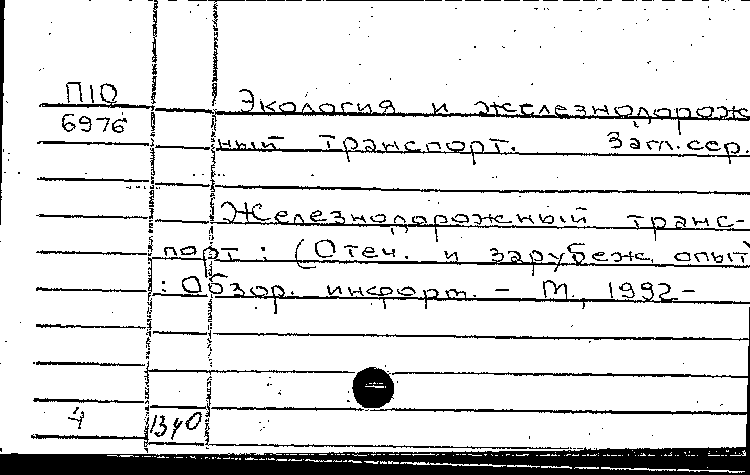 П10
6976
Экология и железнодорож
ный транспорт. Загл.сер.
Железнодорожный транс-
порт : (Отеч. и зарубеж. опыт)
: Обзор. информ. - М., 1992-
4 1340